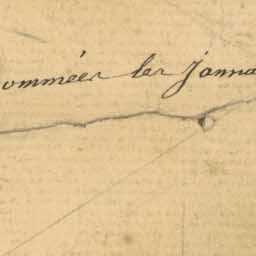 ommées les Janna